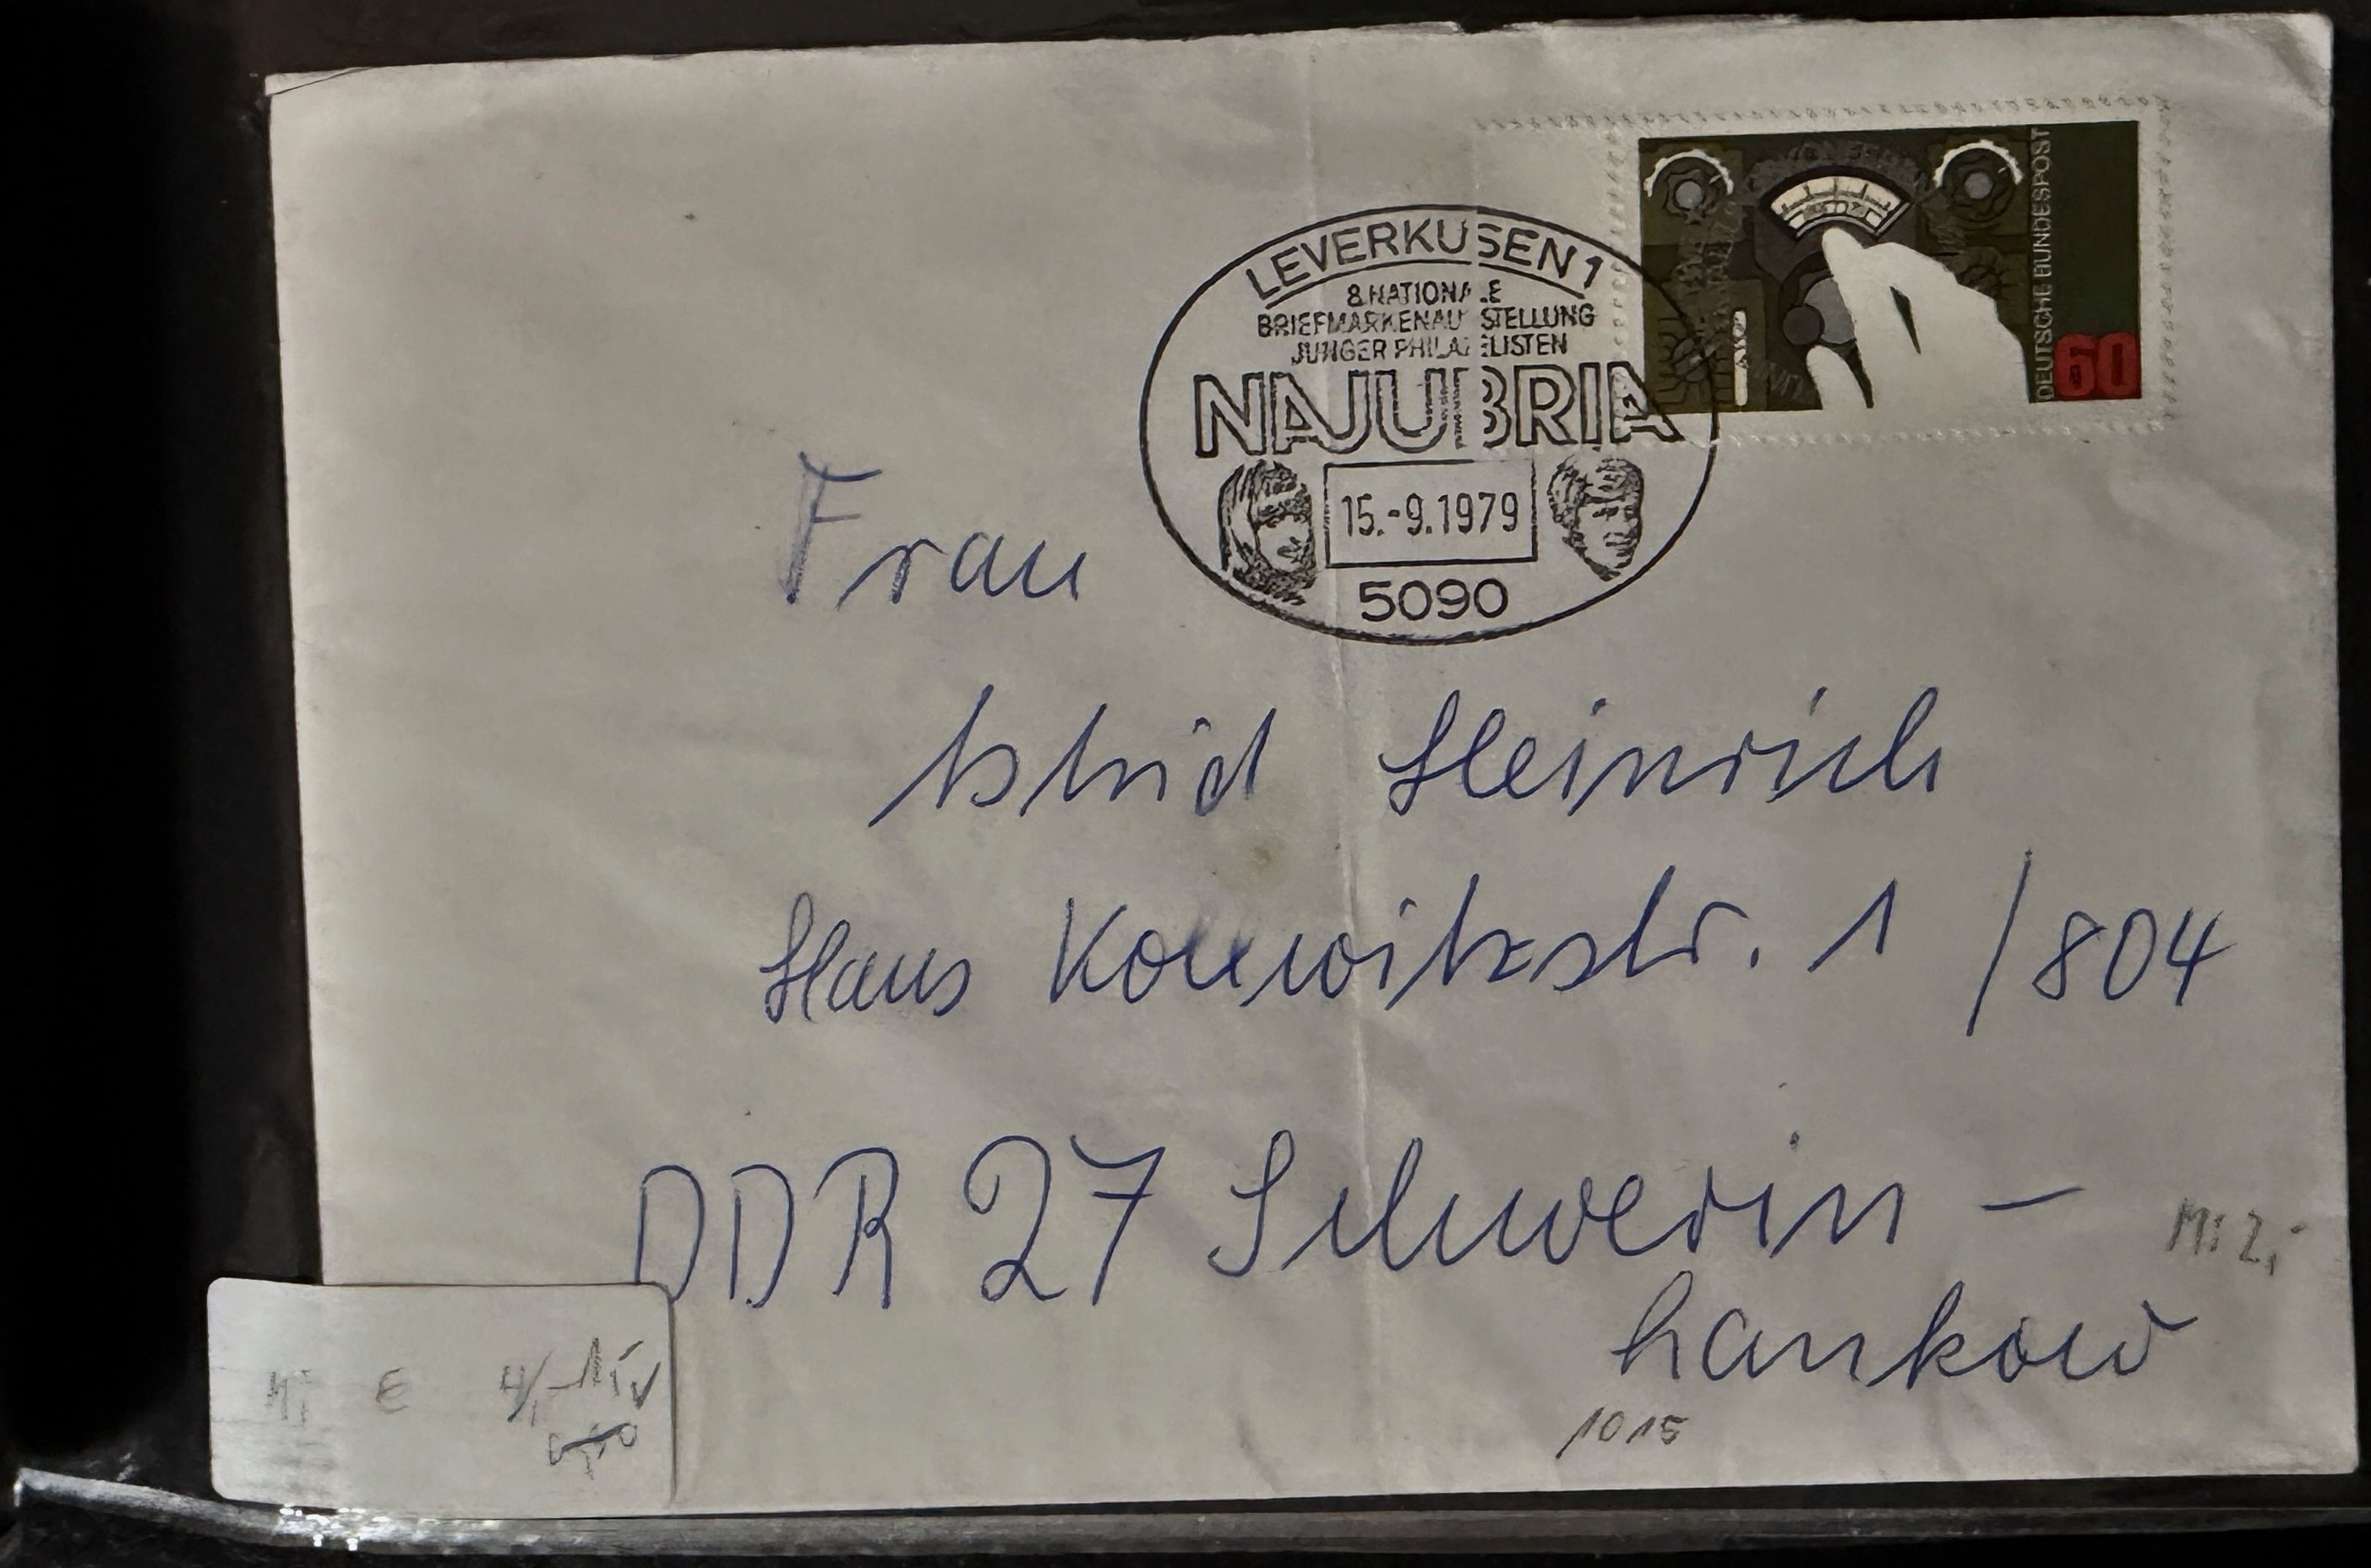 DEUTSCHE BUNDESPOST
60
LEVERKUSEN 1
8. NATIONALE
BRIEFMARKENAUSSTELLUNG
JUNGER PHILATELISTEN
NAJUBRIA
15.-9.1979
5090
Frau
Astrid Heinrich
Hans Kollwitzstr. 1 /804
DDR 27 Schwerin -
Lankow
Mi 2,-
1015
Mi € 4,-